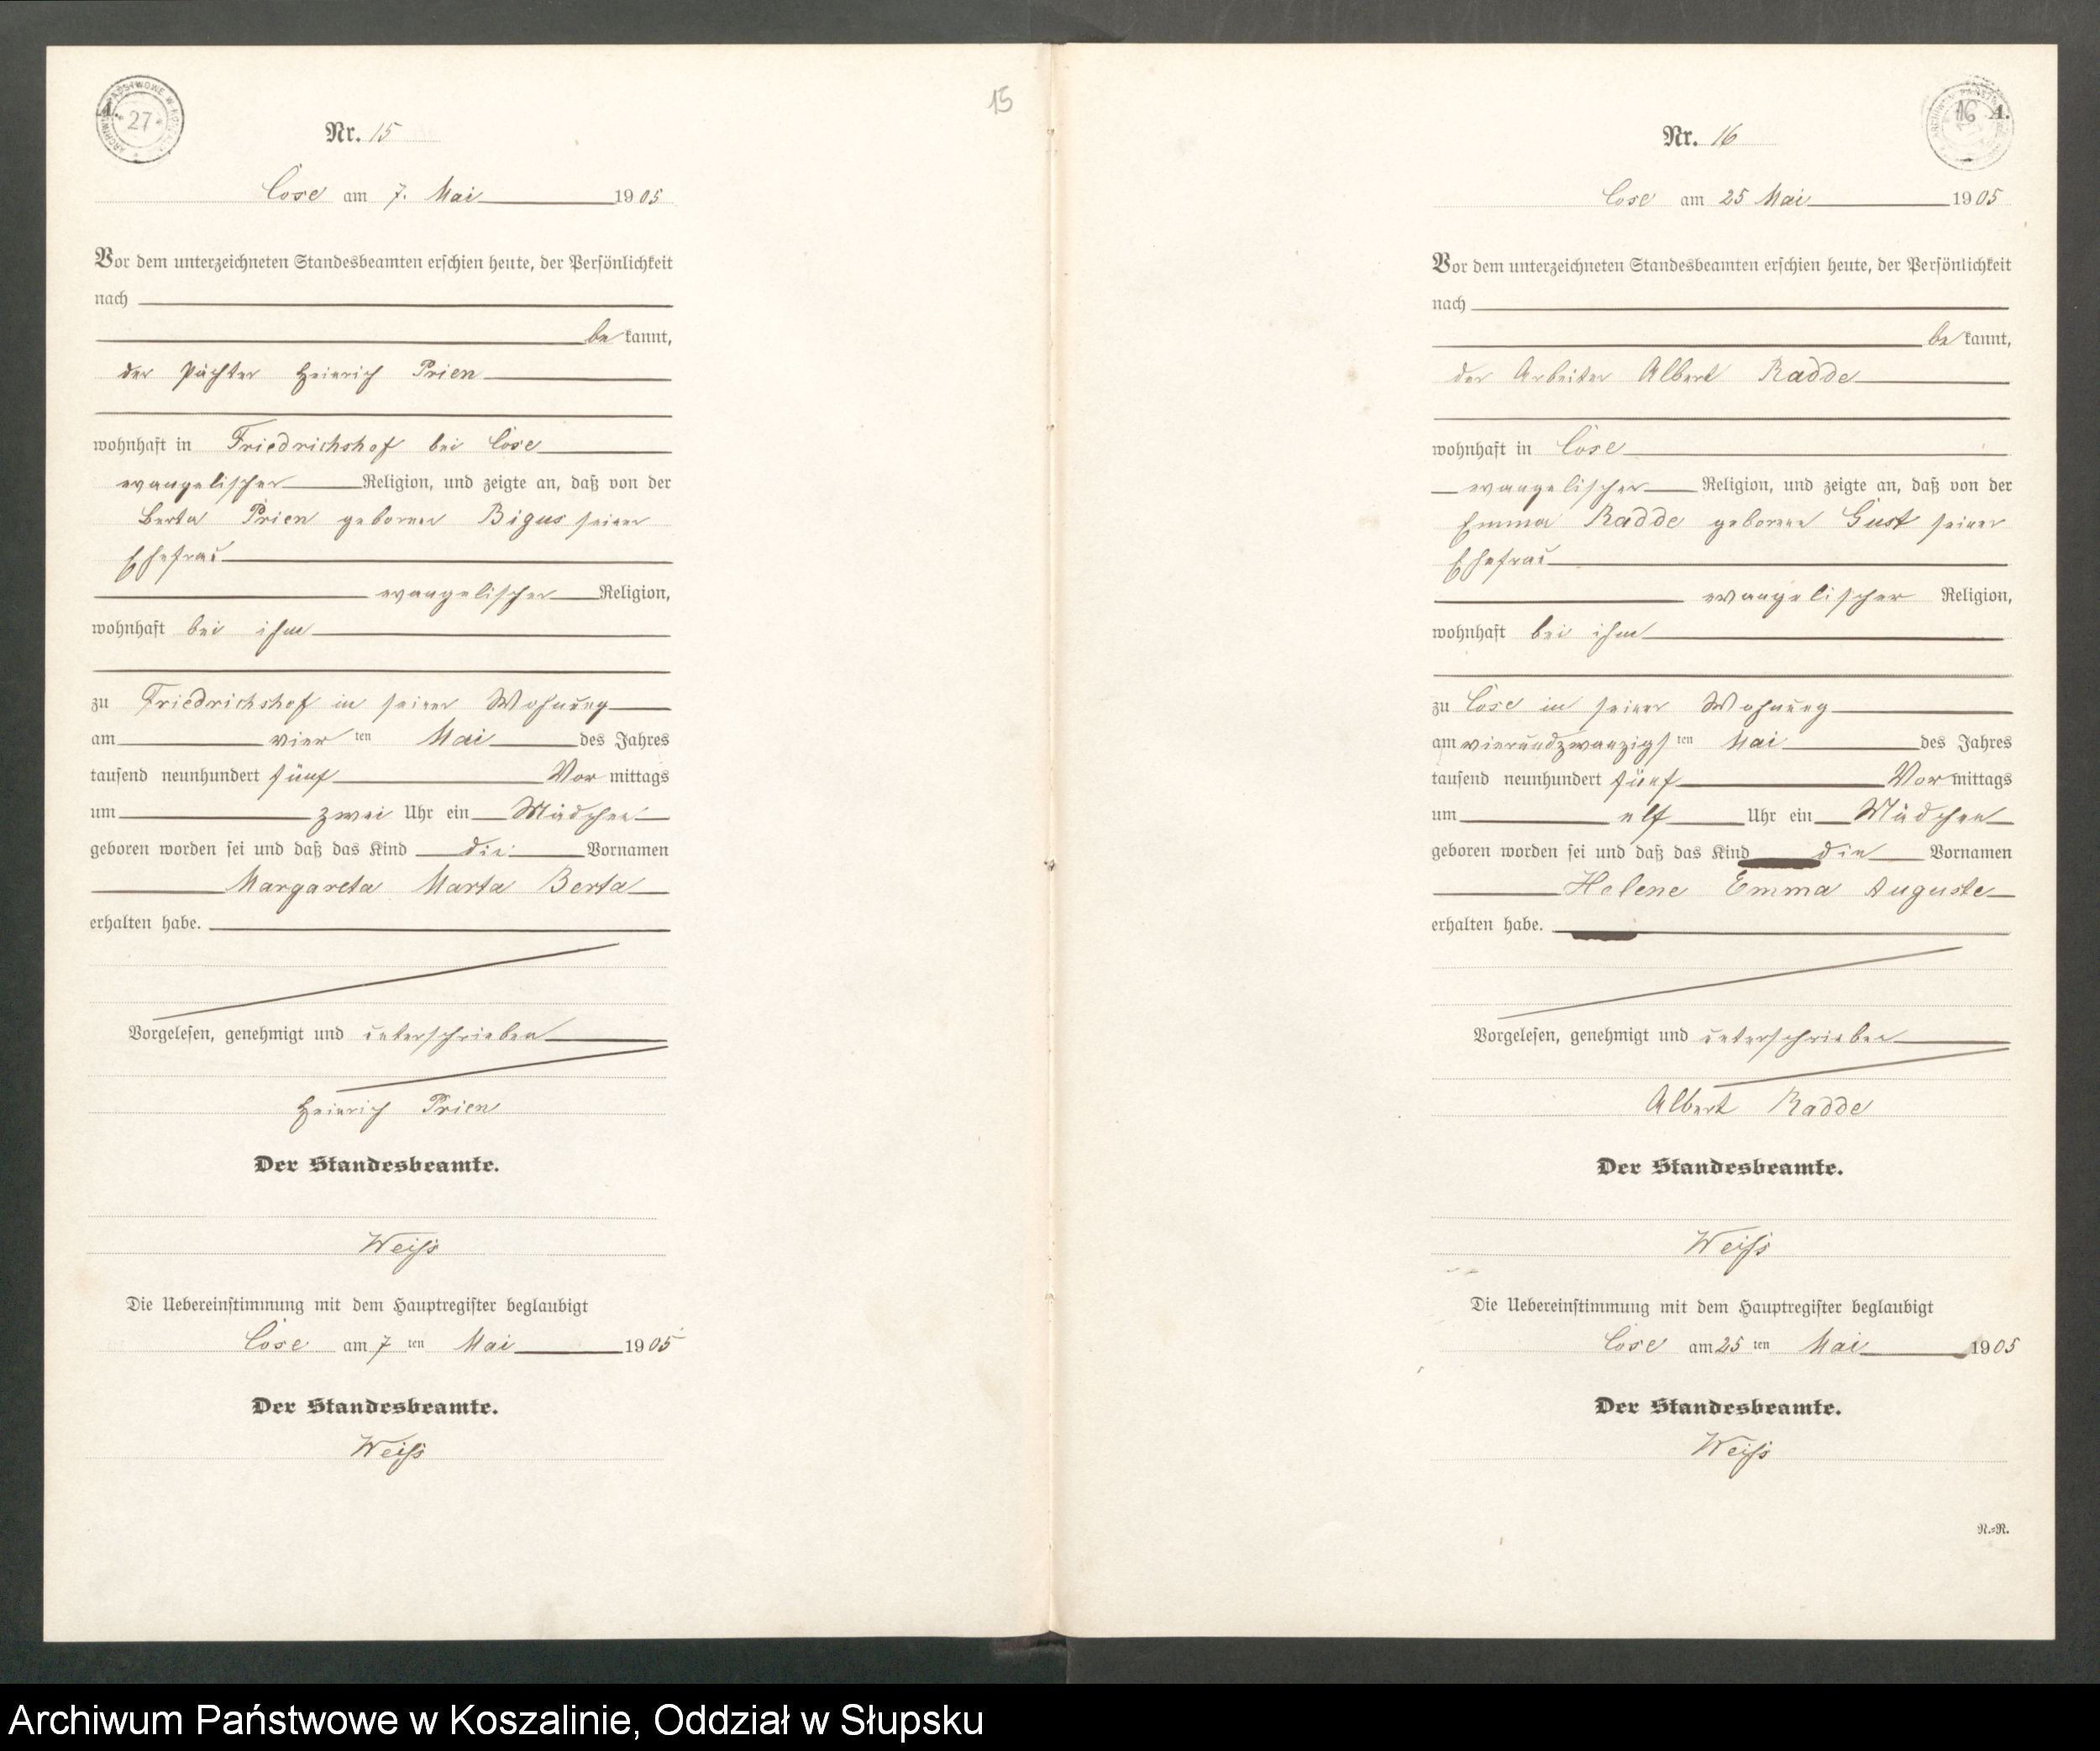 A.
ARCHIWUM PAŃSTWOWE W KOSZALINIE
27
Nr. 15
Cose am 7. Mai 1905
Vor dem unterzeichneten Standesbeamten erschien heute, der Persönlichkeit
nach
bekannt,
der Pächter Heinrich Prien
wohnhaft in Friedrichshof bei Cose
evangelischer Religion, und zeigte an, daß von der
Berta Prien geborner Bigus seiner
Ehefrau
evangelischer Religion,
wohnhaft bei ihm
zu Friedrichshof in seiner Wohnung
am vier ten Mai des Jahres
tausend neunhundert fünf Vor mittags
um zwei Uhr ein Mädchen
geboren worden sei und daß das Kind die Vornamen
Margareta Marta Berta
erhalten habe.
Vorgelesen, genehmigt und unterschrieben
Heinrich Prien
Der Standesbeamte.
Weiß
Die Uebereinstimmung mit dem Hauptregister beglaubigt
Cose am 7 ten Mai 1905
Der Standesbeamte.
Weiß
15
16 A.
Nr. 16
Cose am 25 Mai 1905
Vor dem unterzeichneten Standesbeamten erschien heute, der Persönlichkeit
nach
bekannt,
der Arbeiter Albert Radde
wohnhaft in Cose
evangelischer Religion, und zeigte an, daß von der
Emma Radde geborene Gust seiner
Ehefrau
evangelischer Religion,
wohnhaft bei ihm
zu Cose in seiner Wohnung
am vierundzwanzigs ten Mai des Jahres
tausend neunhundert fünf Vor mittags
um elf Uhr ein Mädchen
geboren worden sei und daß das Kind die Vornamen
Helene Emma Auguste
erhalten habe.
Vorgelesen, genehmigt und unterschrieben
Albert Radde
Der Standesbeamte.
Weiß
Die Uebereinstimmung mit dem Hauptregister beglaubigt
Cose am 25 ten Mai 1905
Der Standesbeamte.
Weiß
N.=N.
Archiwum Państwowe w Koszalinie, Oddział w Słupsku